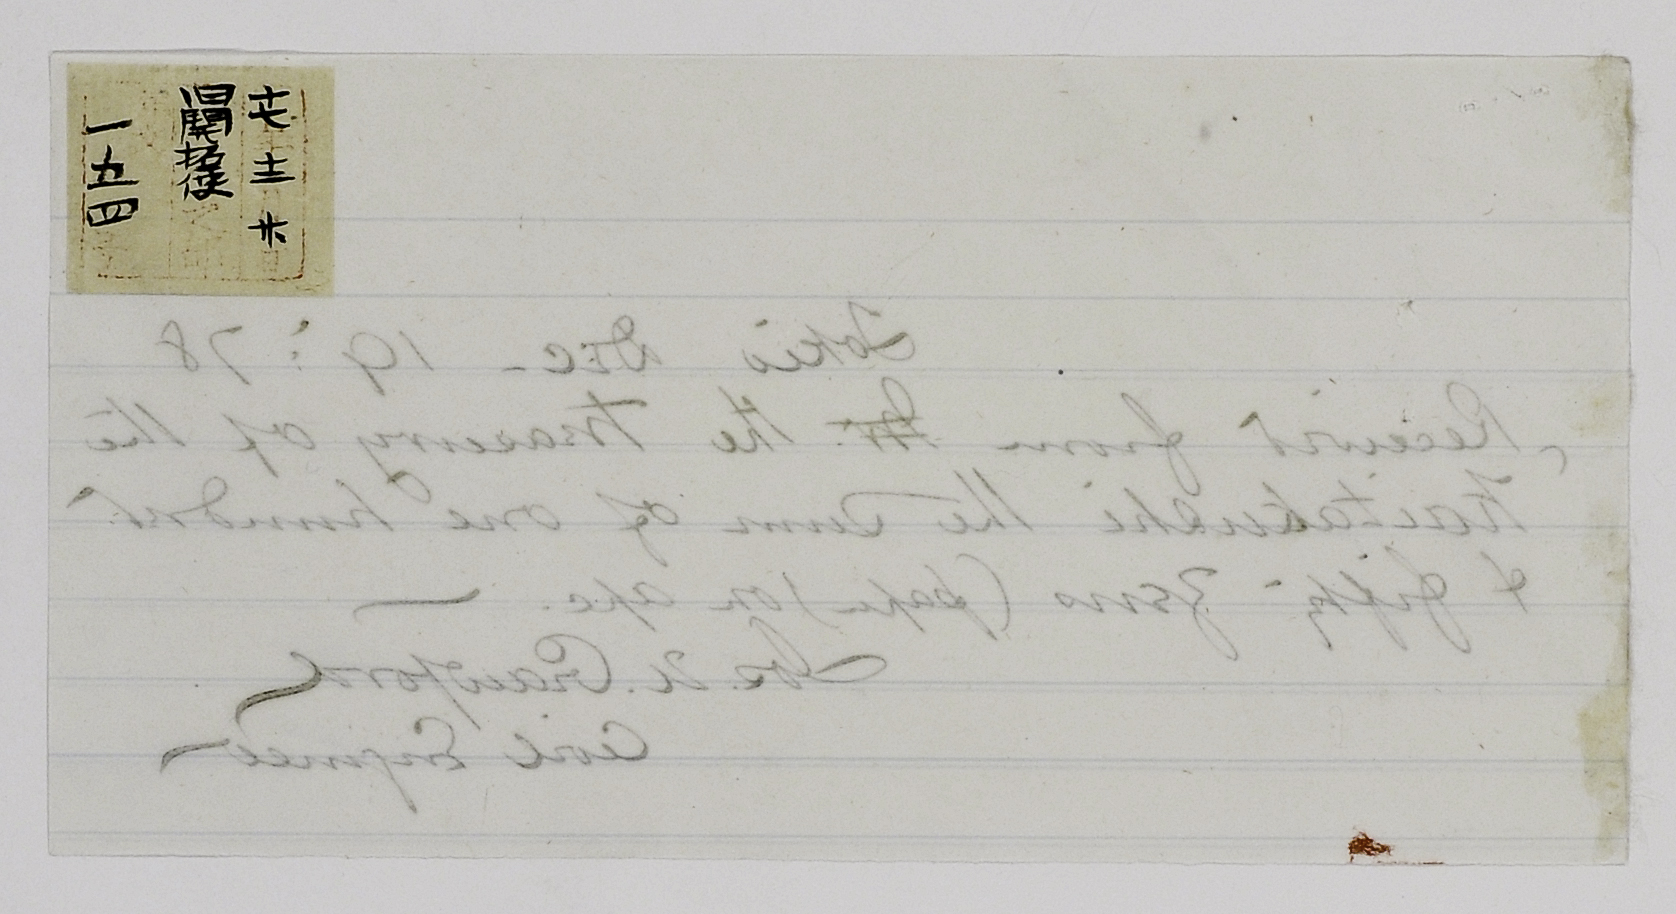 旧開拓使
一五四
Tokio Dec - 19 : 78
Received from the Treasury of the
Kaitakushi the sum of one hundred
& fifty yens (paper) on a/c.
Jos. U. Crawford
Civil Engineer